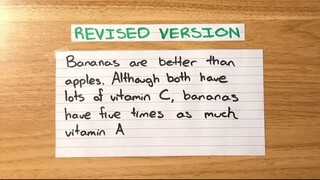 REVISED VERSION
Bananas are better than
apples. Although both have
lots of vitamin C, bananas
have five times as much
vitamin A